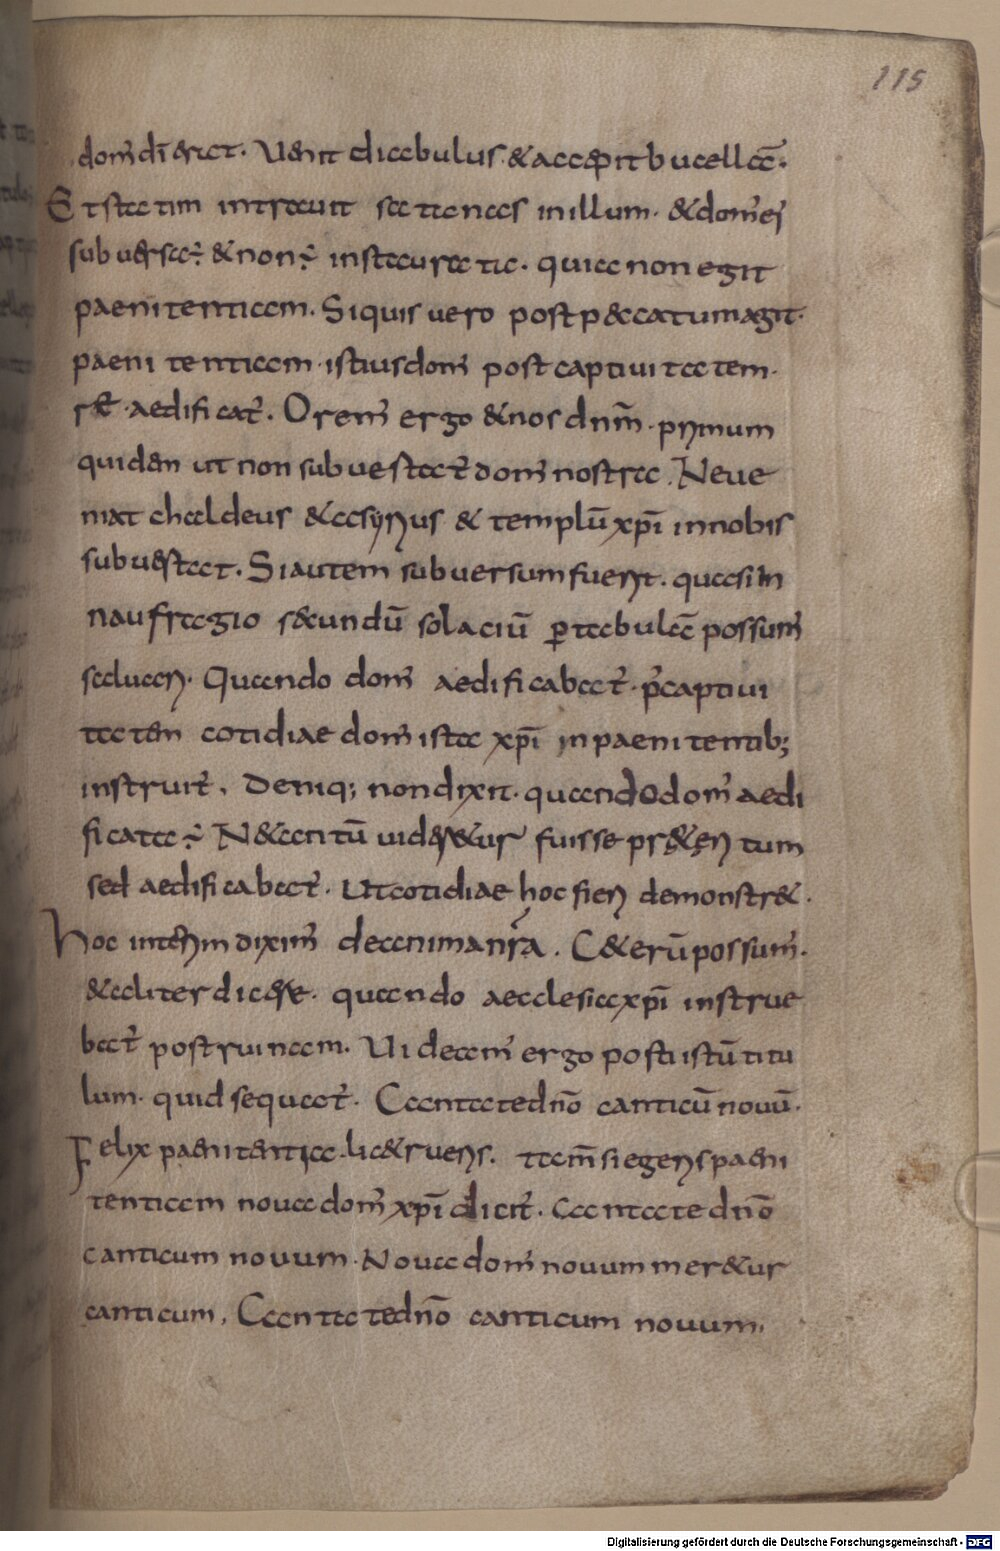 115
dom' dī erat. Uenit diabulus & accepit bucellā.
Et statim introiuit satanas in illum. & dom' ei'
subuersa ÷ & non ÷ instaurata. quia non egit
paenitentiam. Si quis uero post peccatum agit.
paenitentiam. istius dom' post captiuitatem.
re aedificat'. Orem' ergo & nos dnm̄. primum
quidem ut non subuestat' dom' nostra. Neue
niat chaldeus & asyrius & templū xp̄i in nobis
subuestat. Si autem subuersum fuerit. quasi in
naufragio secundū solaciū p tabulā possum'
saluari. Quando dom' aedificabat'. p' captiui
tatem cotidiae dom' ista xp̄i in paenitentib;
instruit'. Deniq; non dixit. quando dom' aedi
ficata ÷ N& tantū uideretur fuisse praeteritum
sed aedificabat'. Ut cotidiae hoc fieri demonstr&.
Hoc interim dixim' de anima nr̄a. C&erū possum'.
& aliter dicere. quando aecclesia xp̄i instrue
bat' post ruinam. Uideam' ergo post istū titu
lum. quid sequat'. Cantate dnō canticū nouū.
Felix paenitentia. lic& rueris. tam̄ si egeris paeni
tentiam noua dom' xp̄i dicit'. Cantate dnō
canticum nouum. Noua dom' nouum mer&ur
canticum. Cantate dnō canticum nouum.
Digitalisierung gefördert durch die Deutsche Forschungsgemeinschaft - DFG